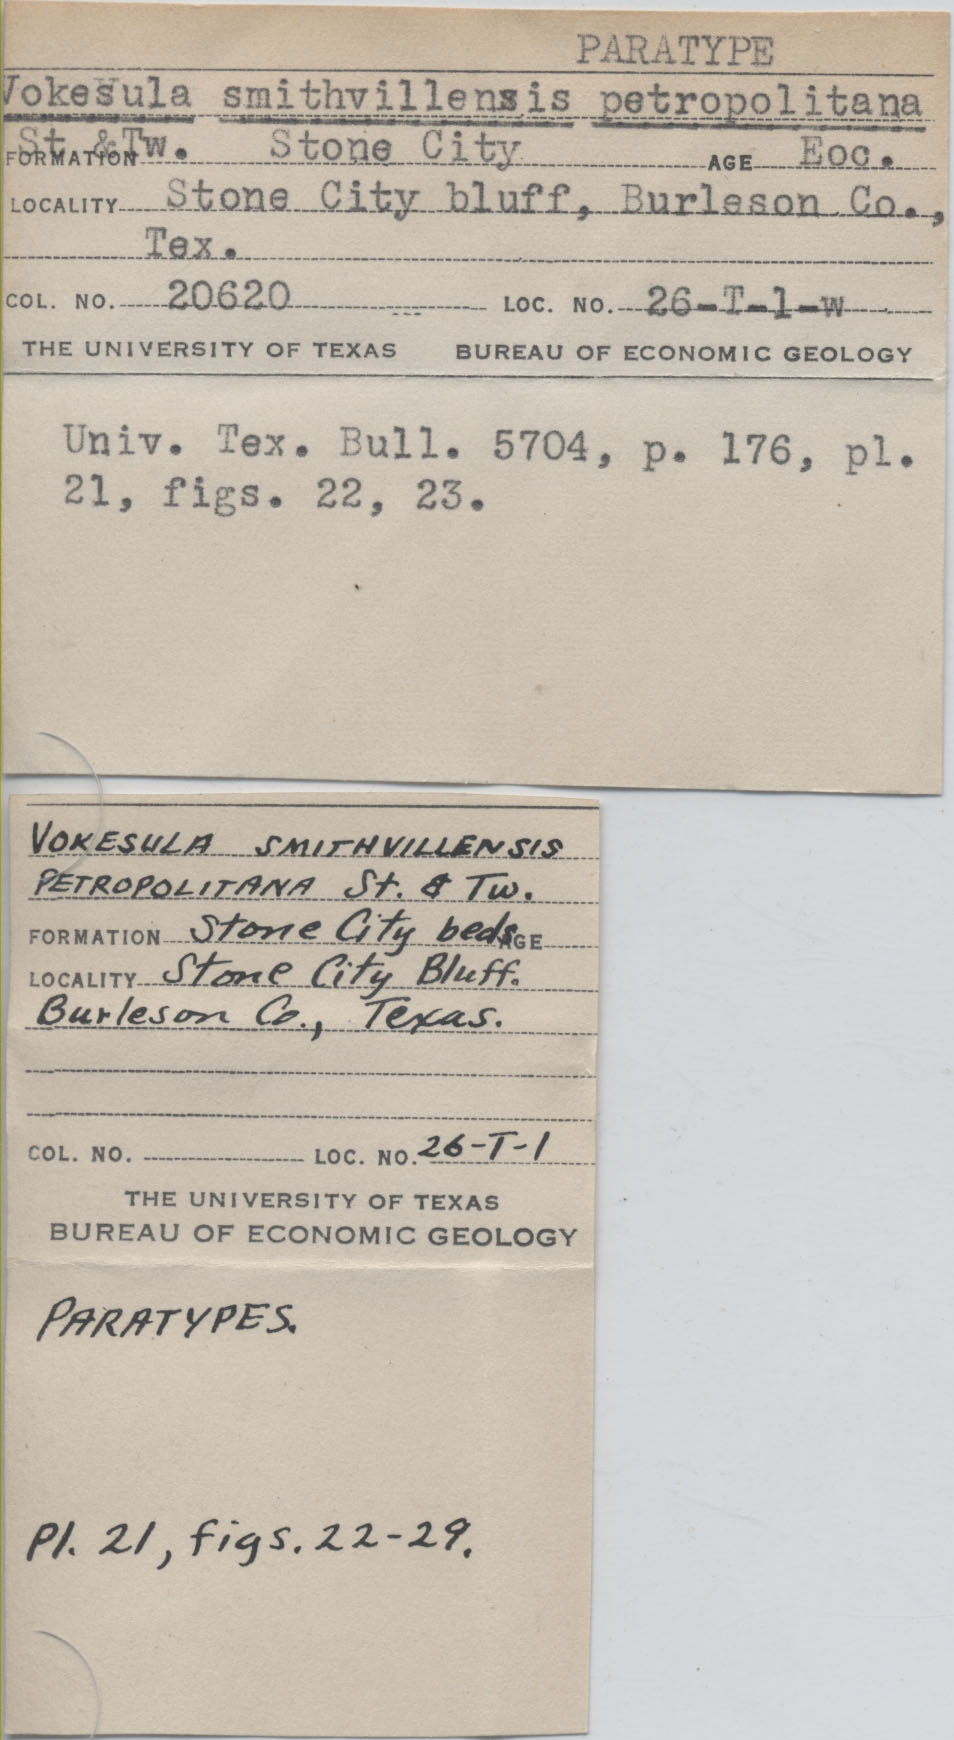 PARATYPE
Vokesula smithvillensis petropolitana
St &Tw. Stone City
FORMATION AGE Eoc.
LOCALITY Stone City bluff, Burleson Co.,
Tex.
COL. NO. 20620 LOC. NO. 26-T-1-w
THE UNIVERSITY OF TEXAS BUREAU OF ECONOMIC GEOLOGY
Univ. Tex. Bull. 5704, p. 176, pl.
21, figs. 22, 23.
VOKESULA SMITHVILLENSIS
PETROPOLITANA St. & Tw.
FORMATION Stone City beds AGE
LOCALITY Stone City Bluff.
Burleson Co., Texas.
COL. NO. LOC. NO. 26-T-1
THE UNIVERSITY OF TEXAS
BUREAU OF ECONOMIC GEOLOGY
PARATYPES.
Pl. 21, figs. 22-29.